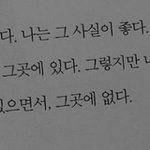 다. 나는 그 사실이 좋다.
그곳에 있다. 그렇지만 나
있으면서, 그곳에 없다.